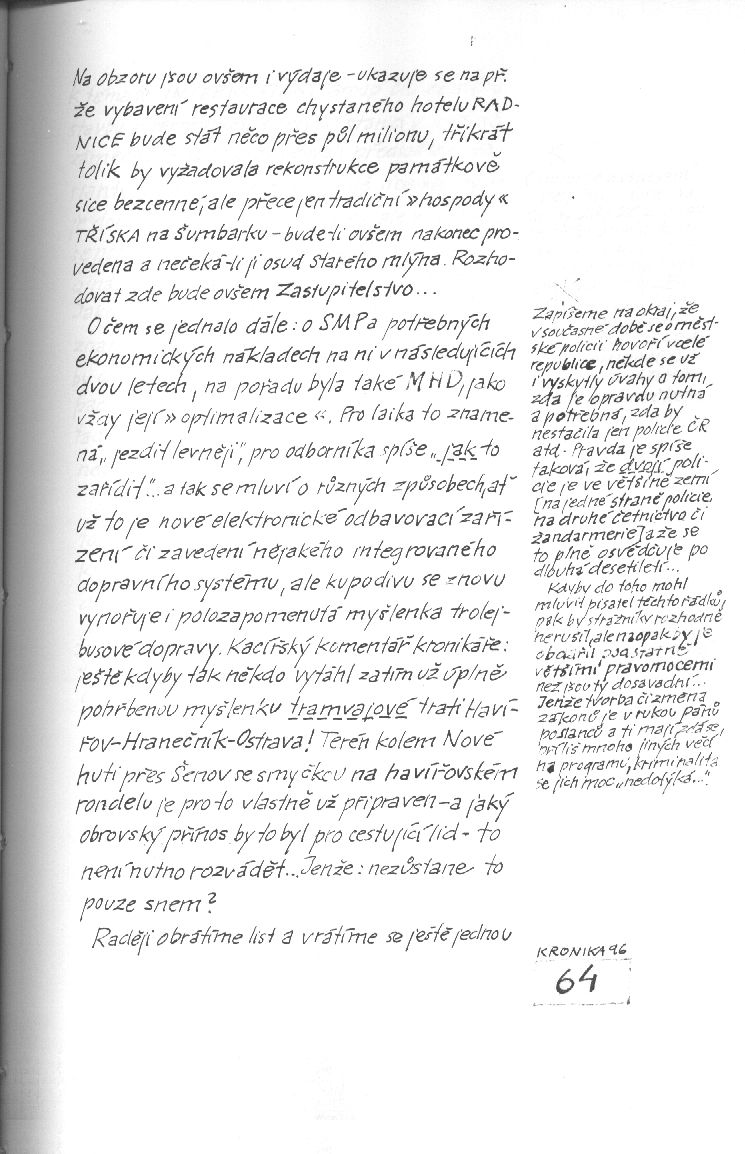 Na obzoru jsou ovšem i výdaje – ukazuje se např.
že vybavení restaurace chystaného hotelu RAD-
NICE bude stát něco přes půl milionu, tříkrát
tolik by vyžadovala rekonstrukce památkově
sice bezcenné, ale přece jen tradiční »hospody«
TŘÍSKA na Šumbarku – bude-li ovšem nakonec pro-
vedena a nečeká-li ji osud Starého mlýna. Rozho-
dovat zde bude ovšem Zastupitelstvo...
O čem se jednalo dále: o SMP a potřebných
ekonomických nákladech na ni v následujících
dvou letech, na pořadu byla také MHD, jako
vždy její »optimalizace«. Pro laika to zname-
ná „jezdit levněji", pro odborníka spíše „jak to
zařídit"... a tak se mluví o různých způsobech, ať
už to je nové elektronické odbavovací zaří-
zení či zavedení nějakého integrovaného
dopravního systému, ale kupodivu se znovu
vynořuje i polozapomenutá myšlenka trolej-
busové dopravy. Kacířský komentář kronikáře:
ještě kdyby tak někdo vytáhl zatím už úplně
pohřbenou myšlenku tramvajové trati Haví-
řov–Hranečník–Ostrava! Terén kolem Nové
huti přes Šenov se smyčkou na havířovském
rondelu je pro to vlastně už připraven – a jaký
obrovský přínos by to byl pro cestující lid – to
není nutno rozvádět... Jenže: nezůstane to
pouze snem?
Raději obrátíme list a vrátíme se ještě jednou
Zapišeme na okraj, že
v současné době se o měst-
ské policii hovoří v celé
republice, někde se už
i vyskytly úvahy o tom,
zda je opravdu nutná
a potřebná, zda by
nestačila jen policie ČR
atd. Pravda je spíše
taková, že dvojí poli-
cie je ve většině zemí
[na jedné straně policie,
na druhé četnictvo či
žandarmerie] a že se
to plně osvědčuje po
dlouhá desetiletí...
Kdyby do toho mohl
mluvit pisatel těchto řádků,
pak by strážníky rozhodně
nerušil, ale naopak by je
obdařil podstatně
většími pravomocemi
než jsou ty dosavadní...
Jenže tvorba či změna
zákonů je v rukou pánů
poslanců a ti mají zdá se,
příliš mnoho jiných věcí
na programu, kriminalita
se jich moc „nedotýká"...
KRONIKA 96
64